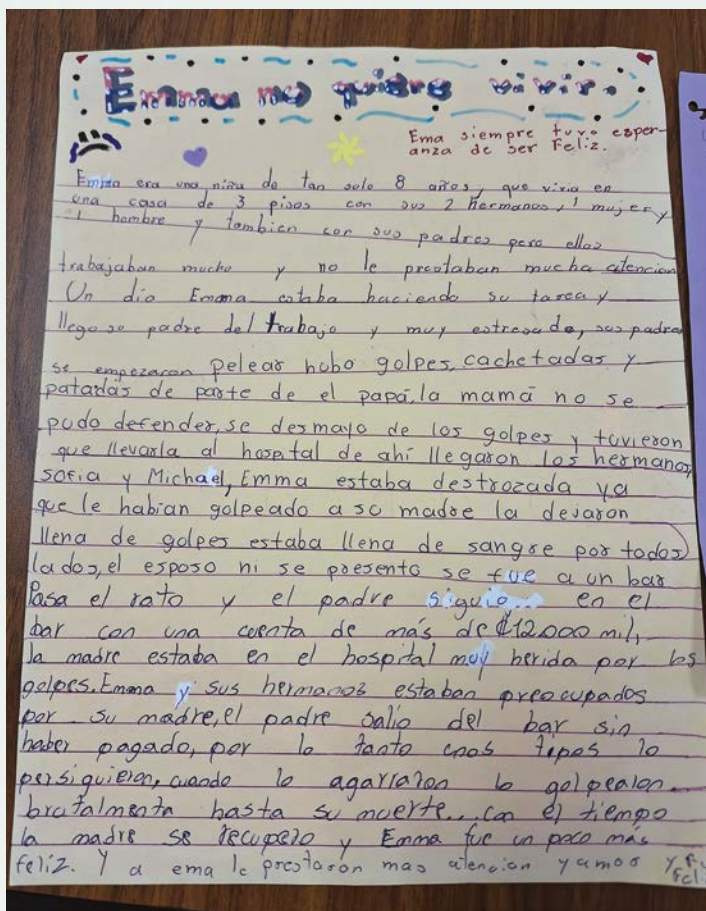 Emma no quiere vivir.
Ema siempre tuvo esper-
anza de ser Feliz.
Emma era una niña de tan solo 8 años, que vivia en
una casa de 3 pisos con sus 2 hermanos, 1 mujer y
1 hombre y tambien con sus padres pero ellos
trabajaban mucho y no le prestaban mucha atencion
Un dia Emma estaba haciendo su tarea y
llego su padre del trabajo y muy estresado, sus padres
se empezaron pelear hubo golpes, cachetadas y
patadas de parte de el papá, la mamá no se
pudo defender, se desmayo de los golpes y tuvieron
que llevarla al hospital de ahí llegaron los hermanos,
sofia y Michael, Emma estaba destrozada ya
que le habian golpeado a su madre la dejaron
llena de golpes estaba llena de sangre por todos
lados, el esposo ni se presento se fue a un bar
Pasa el rato y el padre siguio... en el
bar con una cuenta de más de ₡12.000 mil,
la madre estaba en el hospital muy herida por los
golpes. Emma y sus hermanos estaban preocupados
por su madre, el padre salio del bar sin
haber pagado, por lo tanto unos tipos lo
persiguieron, cuando lo agarraron lo golpearon...
brutalmente hasta su muerte... con el tiempo
la madre se recupero y Emma fue un poco más
feliz. Y a ema le prestaron mas atencion y amor y